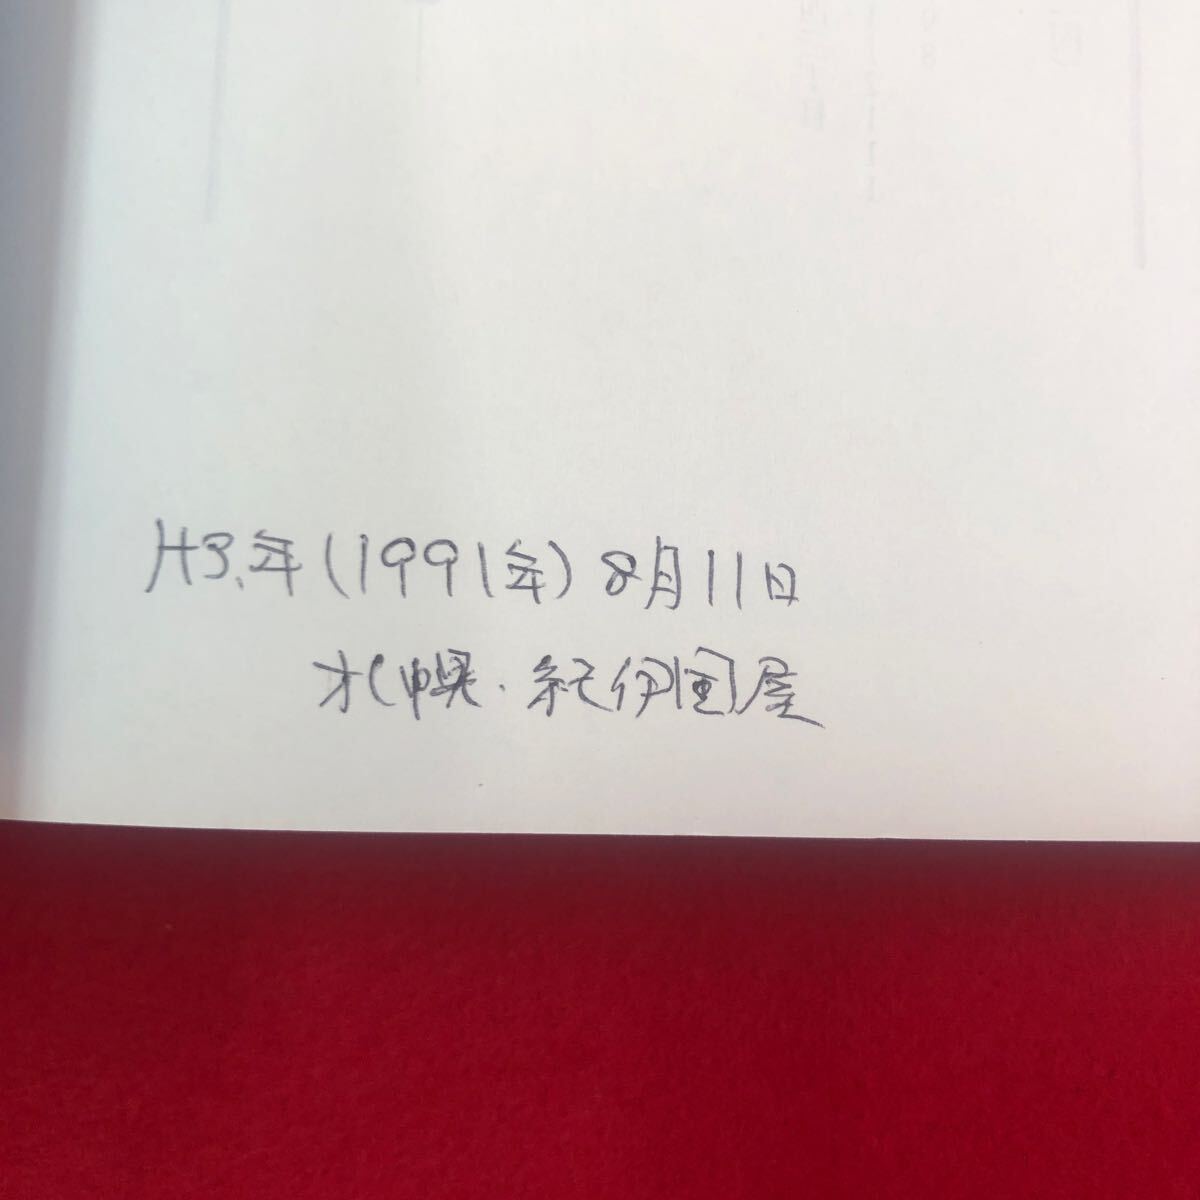 H3.年(1991年)8月11日
札幌.紀伊国屋